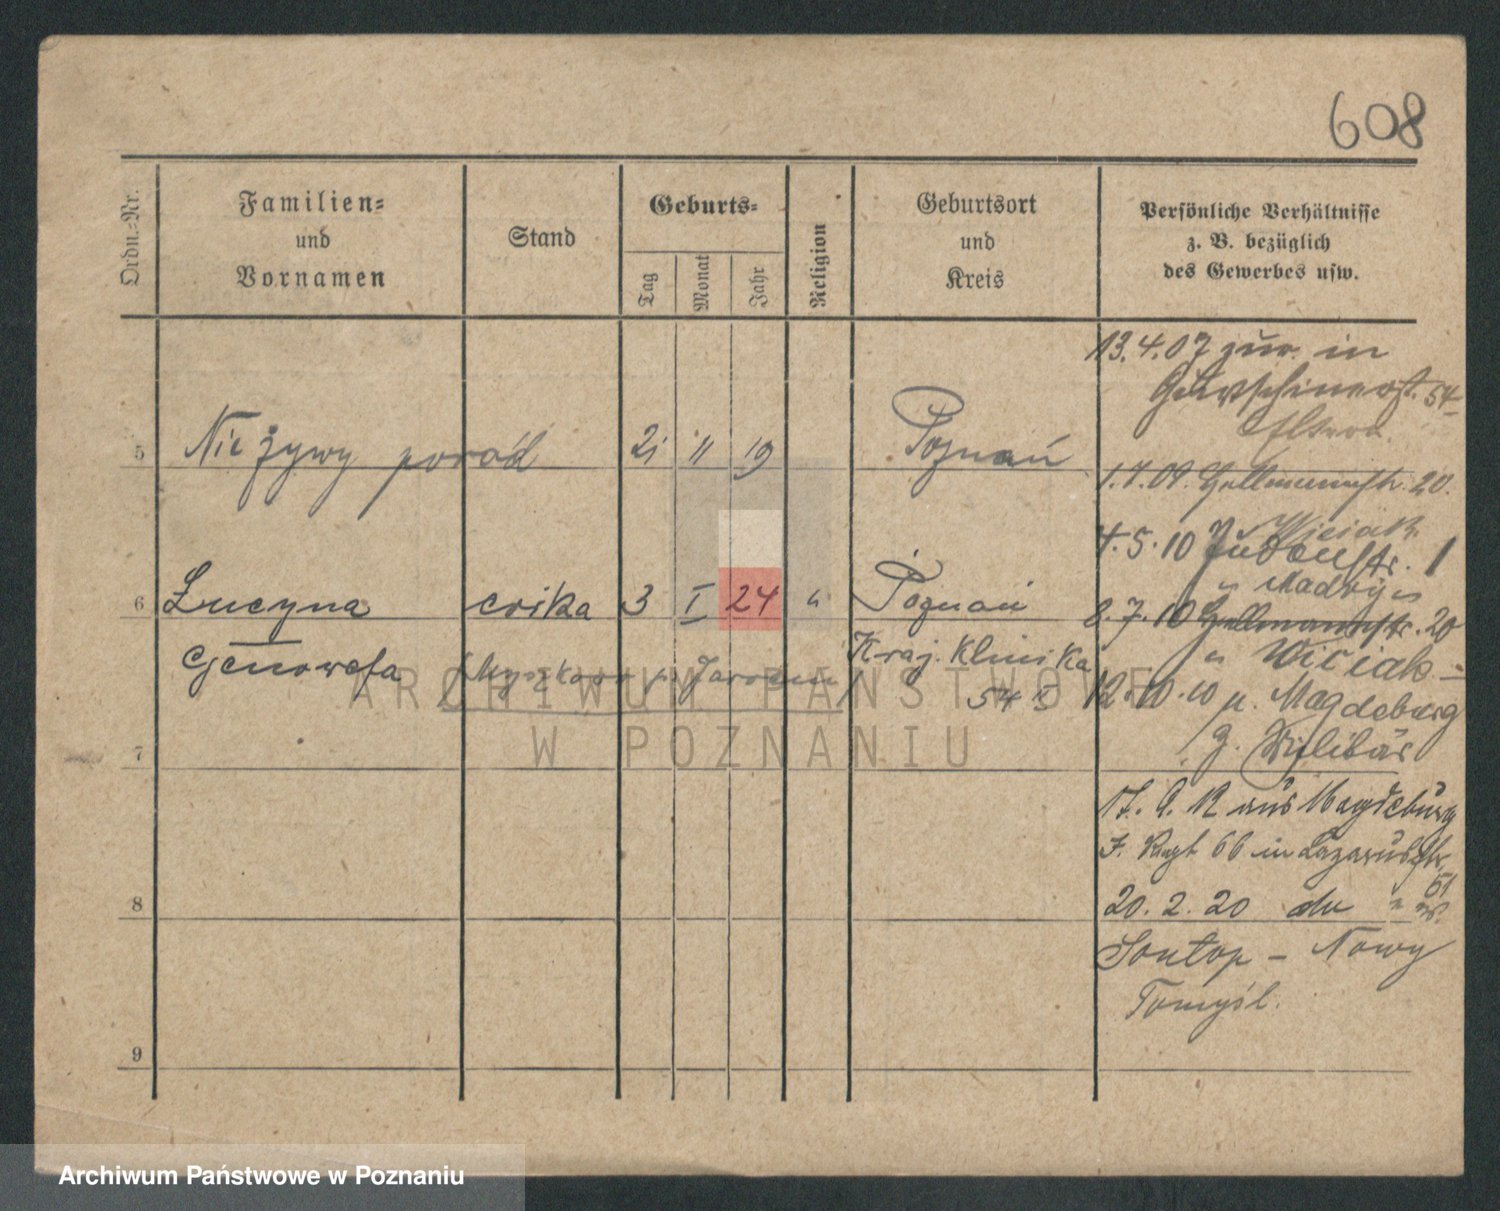 608
Ordn.-Nr.
Familien-
und
Vornamen
Stand
Geburts-
Tag
Monat
Jahr
Religion
Geburtsort
und
Kreis
Persönliche Verhältnisse
z. B. bezüglich
des Gewerbes usw.
13.4.07 zur. in
54
5 Nie żywy poród 21 11 19 Poznań
1.7.09. 20.
Wiciak
4.5.10 Judenstr. 1
" Madry
6 Łucyna córka 3 I 24 " Poznań
8.7.10 20
Genowefa Kraj. Klinika
" Wiciak
54
12.10.10 n. Magdeburg
z. Militär
ARCHIWUM PAŃSTWOWE
W POZNANIU
7
17.9.12 aus Magdeburg
J. Regt 66 in Lazarusstr.
51
8 20.2.20
Sontop - Nowy
Tomyśl.
9
Archiwum Państwowe w Poznaniu